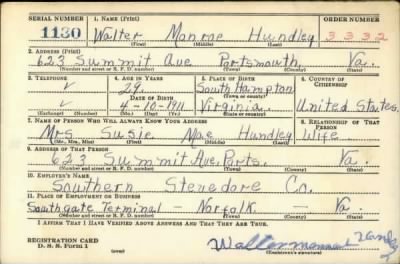 SERIAL NUMBER 1. NAME (Print) ORDER NUMBER
1130 Walter Monroe Hundley 3332
(First) (Middle) (Last)
2. ADDRESS (Print)
623 Summit Ave Portsmouth, Va.
(Number and street or R. F. D. number) (Town) (County) (State)
3. TELEPHONE 4. AGE IN YEARS 5. PLACE OF BIRTH 6. COUNTRY OF CITIZENSHIP
29 South Hampton
DATE OF BIRTH (Town or county)
4-10-1911 Virginia United States
(Mo.) (Day) (Yr.) (State or country)
7. NAME OF PERSON WHO WILL ALWAYS KNOW YOUR ADDRESS 8. RELATIONSHIP OF THAT PERSON
Mrs Susie Mae Hundley Wife
(Mr., Mrs., Miss) (First) (Middle) (Last)
9. ADDRESS OF THAT PERSON
623 Summit Ave, Ports. Va.
(Number and street or R. F. D. number) (Town) (County) (State)
10. EMPLOYER'S NAME
Southern Stevedore Co.
11. PLACE OF EMPLOYMENT OR BUSINESS
Southgate Terminal - Norfolk - Va
(Number and street or R. F. D. number) (Town) (County) (State)
I AFFIRM THAT I HAVE VERIFIED ABOVE ANSWERS AND THAT THEY ARE TRUE.
REGISTRATION CARD
D. S. S. Form 1 (over) (Registrant's signature)